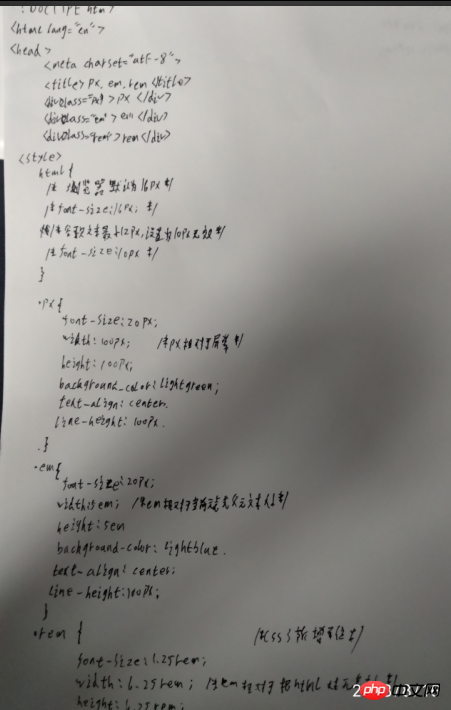 <html lang="en">
<head>
<meta charset="utf-8">
<title> px, em, rem <title>
<div class="px"> px </div>
<div class="em"> em </div>
<div class="rem"> rem </div>
<style>
html {
/* 浏览器默认为16px */
/* font-size:16px; */
谷歌文本最小12px,设置为10px无效 */
/* font-size:10px */
}
.px {
font-size: 20px;
width: 100px; /* px相对于屏幕 */
height: 100px;
background_color: lightgreen;
text-align: center.
line-height: 100px.
}
.em{
font-size: 20px;
width:5em; /* em相对于
height: 5em
background-color: lightblue.
text-align: center;
line-height: 100px;
}
.rem { /* CSS3新增单位 */
font-size: 1.25rem;
width: 6.25rem;
height: 6.25rem;
php 中文网